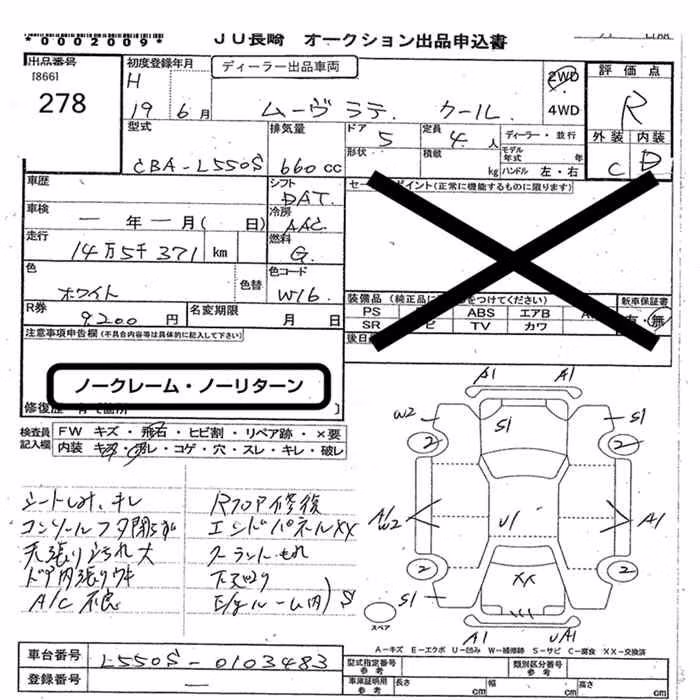 *0002009*
JU長崎 オークション出品申込書
出品番号
[866]
278
初度登録年月
H
19年6月
ディーラー出品車両
ムーヴ ラテ クール
2WD
4WD
評価点
R
外装 内装
C D
型式
CBA-L550S
排気量
660cc
ドア
5
定員
4人
ディーラー・並行
形状
積載
kg
モデル年式 年
ハンドル 左・右
車歴
シフト
DAT
車検
ー年ー月( 日)
冷房
AAC
走行
14万5千371km
燃料
G
色
ホワイト
色替
色コード
W16
R券
9,200円
名変期限
月 日
ポイント(正常に機能するものに限ります)
装備品
をつけてください)
新車保証書
有・無
PS
ABS
エアB
SR
TV
カワ
後日
注意事項申告欄(不具合内容等は具体的に記入して下さい)
ノークレーム・ノーリターン
修復歴
検査員記入欄
FW キズ・飛石・ヒビ割・リペア跡・×要
内装 コゲ・穴・スレ・キレ・破レ
シートしみ、キレ
Rフロア修復
コンソールフタ閉じず
エンドパネルXX
天張り汚れ大
クーラントもれ
ドア内張りウキ
下廻り
A/C不良
E/gルーム内)S
A1 A1
W2 S1 S1
2 2
A/W2 U1 A1
2 2
XX
S1
A1 UA1
スペア
A-キズ E-エクボ U-凹み W-補修跡 S-サビ C-腐食 XX-交換済
車台番号
L550S-0103483
登録番号
ー
型式指定番号
参考
類別区分番号
参考
車庫証明用
参考
長さ cm
幅 cm
高さ cm